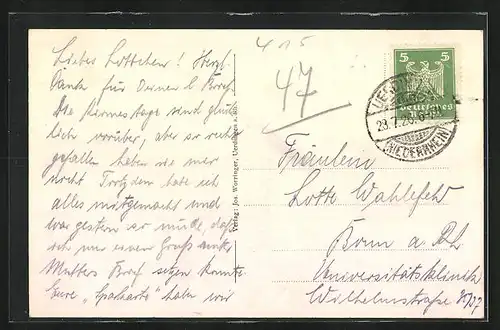 Liebes Lottchen! Herzl.
Dank für Deinen l. Brief.
Die Kirmestage sind glück-
lich vorüber, aber so recht
gefallen haben sie mir
nicht. Trotzdem habe ich
alles mitgemacht und
war gestern so müde, daß
ich nur einen Gruß unter
Mutters Brief setzen konnte.
Eure "Sparkarte" haben wir
Verlag: Jos. Worringer, Uerdingen a. Rh.
47
5 5
Deutsches
UERDINGEN
23.7.26.
(NIEDERRHEIN)
Fräulein
Lotte Wahlefeld
Bonn a. Rh.
Universitätsklinik
Wilhelmstraße